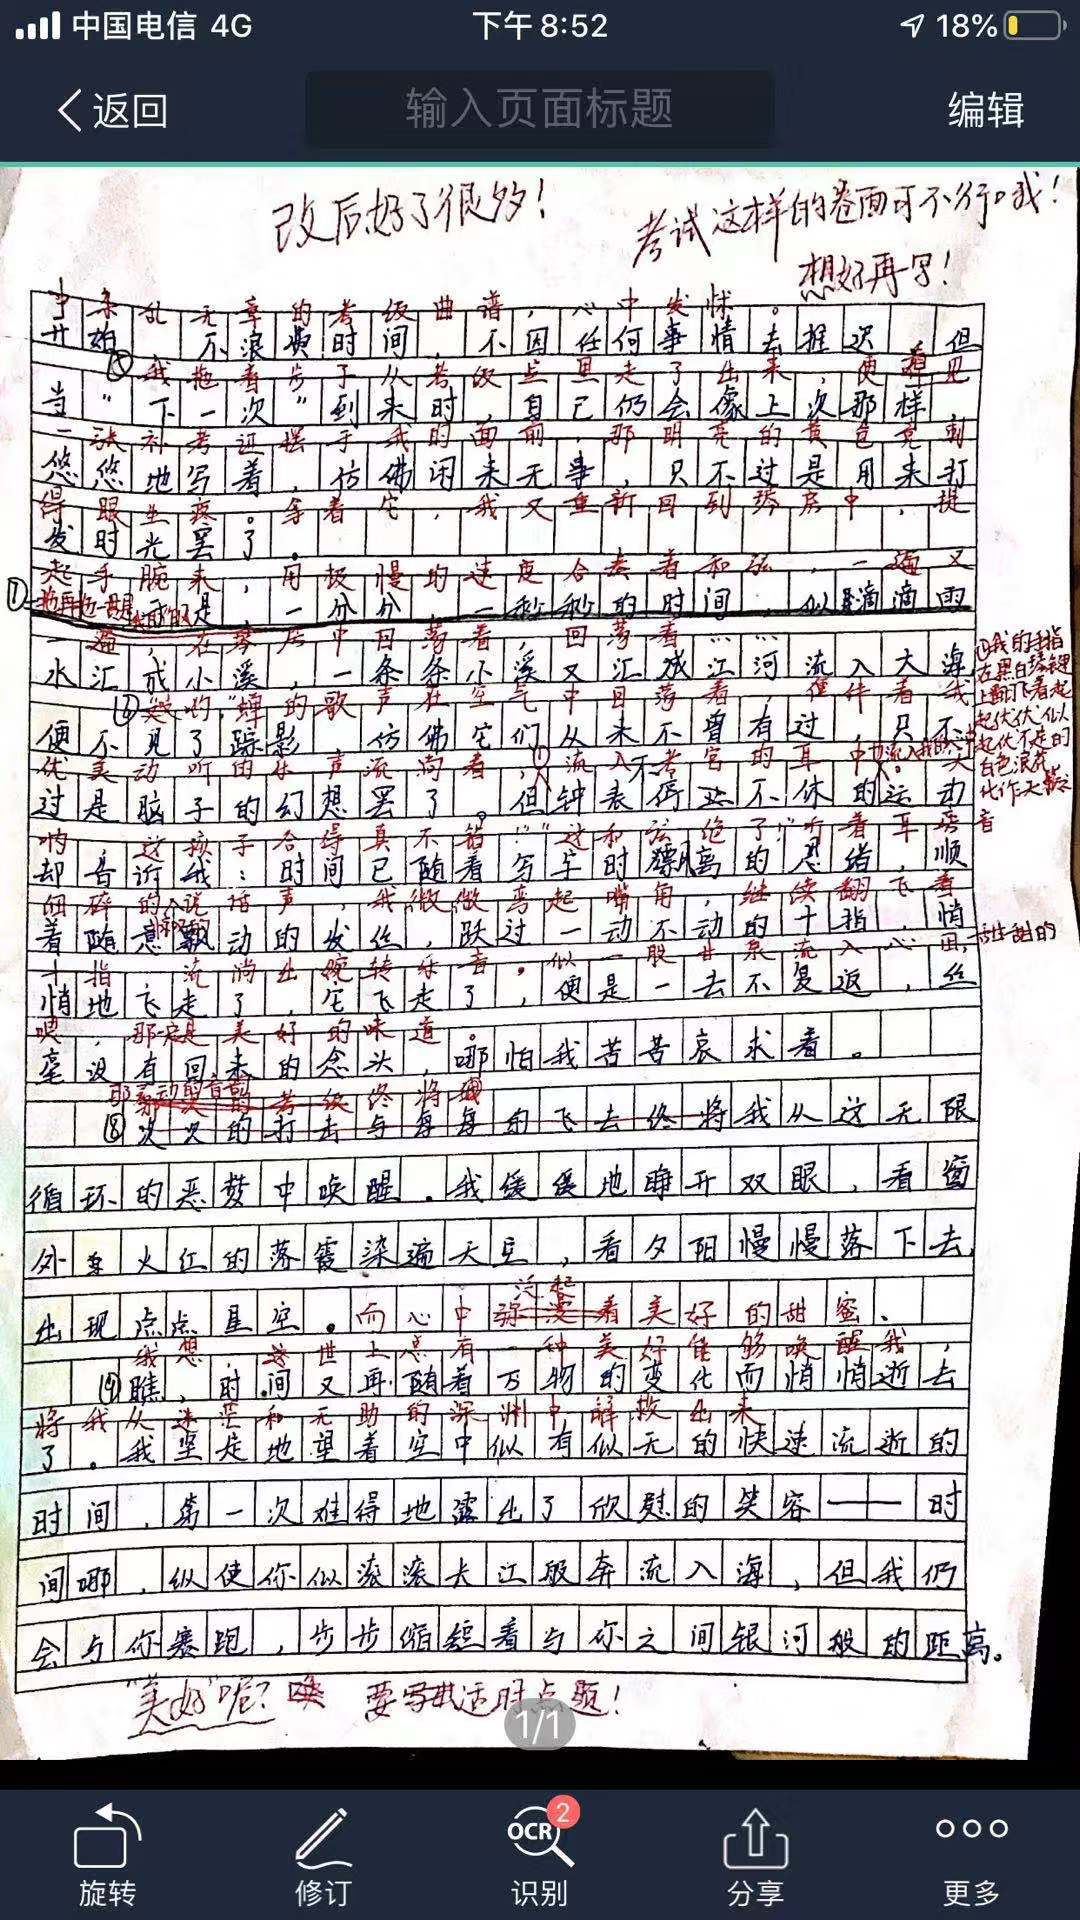 中国电信 4G 下午8:52 18%
返回 输入页面标题 编辑
改后好了很多！
考试这样的卷面可不行哦！
想好再写！
乱无章的考级曲谱，心中发怵。
开始，不浪费时间，不因任何事情去推迟，但
我拖着步子从考级点里走了出来，便看见
当“下一次”到来时，自己仍会像上次那样，
一张补考证摆于我的面前，那明亮的黄色亮刺
悠悠地写着，仿佛闲来无事，只不过是用来打
得眼生疼。拿着它，我又重新回到琴房中，提
发时光罢了。
起手腕来，用极慢的速度合奏着和弦，一遍又
①
一分分，一秒秒的时间，似滴滴雨
一遍，在琴房中回荡着，回荡着……
水汇成小溪，一条条小溪又汇成江河流入大海
蝉的歌声在空气中回荡着，伴着我
便不见了踪影，仿佛它们从来不曾有过，只不
优美动听的乐声流淌着，流入考官的耳中
过是脑子的幻想罢了。但钟表停止不休的运动
哟，这孩子合得真不错！”“这和弦绝了！”听着耳旁
却告诉我：时间已随着写字时飘离的思绪，顺
细碎的说话声，我微微弯起嘴角，继续翻飞着
着随意飘动的发丝，跃过一动不动的十指，悄
十指，流淌出婉转乐音。似一股甘泉流入心田，
甜甜的
悄地飞走了，它飞走了，便是一去不复返，丝
嗯，那定是美好的味道。
毫没有回来的念头，哪怕我苦苦哀求着。
①我的手指在黑白琴键上翻飞着起起伏伏，似起伏不定的白色浪花化作天籁之音
⑧次次的打击与每每的飞去终将我从这无限
循环的恶梦中唤醒。我缓缓地睁开双眼，看窗
外火红的落霞染遍天空，看夕阳慢慢落下去，
泛起
出现点点星空。而心中弥漫着美好的甜蜜、
我想，这世上总有一种美好能够唤醒我，
瞧，时间又再随着万物的变化而悄悄逝去
将我从迷茫和无助的深渊中解救出来
了。我坚定地望着空中似有似无的快速流逝的
时间，第一次难得地露出了欣慰的笑容——时
间哪，纵使你似滚滚长江般奔流入海，但我仍
会与你赛跑，步步缩短着与你之间银河般的距离。
“美好”呢？要写适时点题！
1/1
旋转 修订 OCR 2 识别 分享 更多